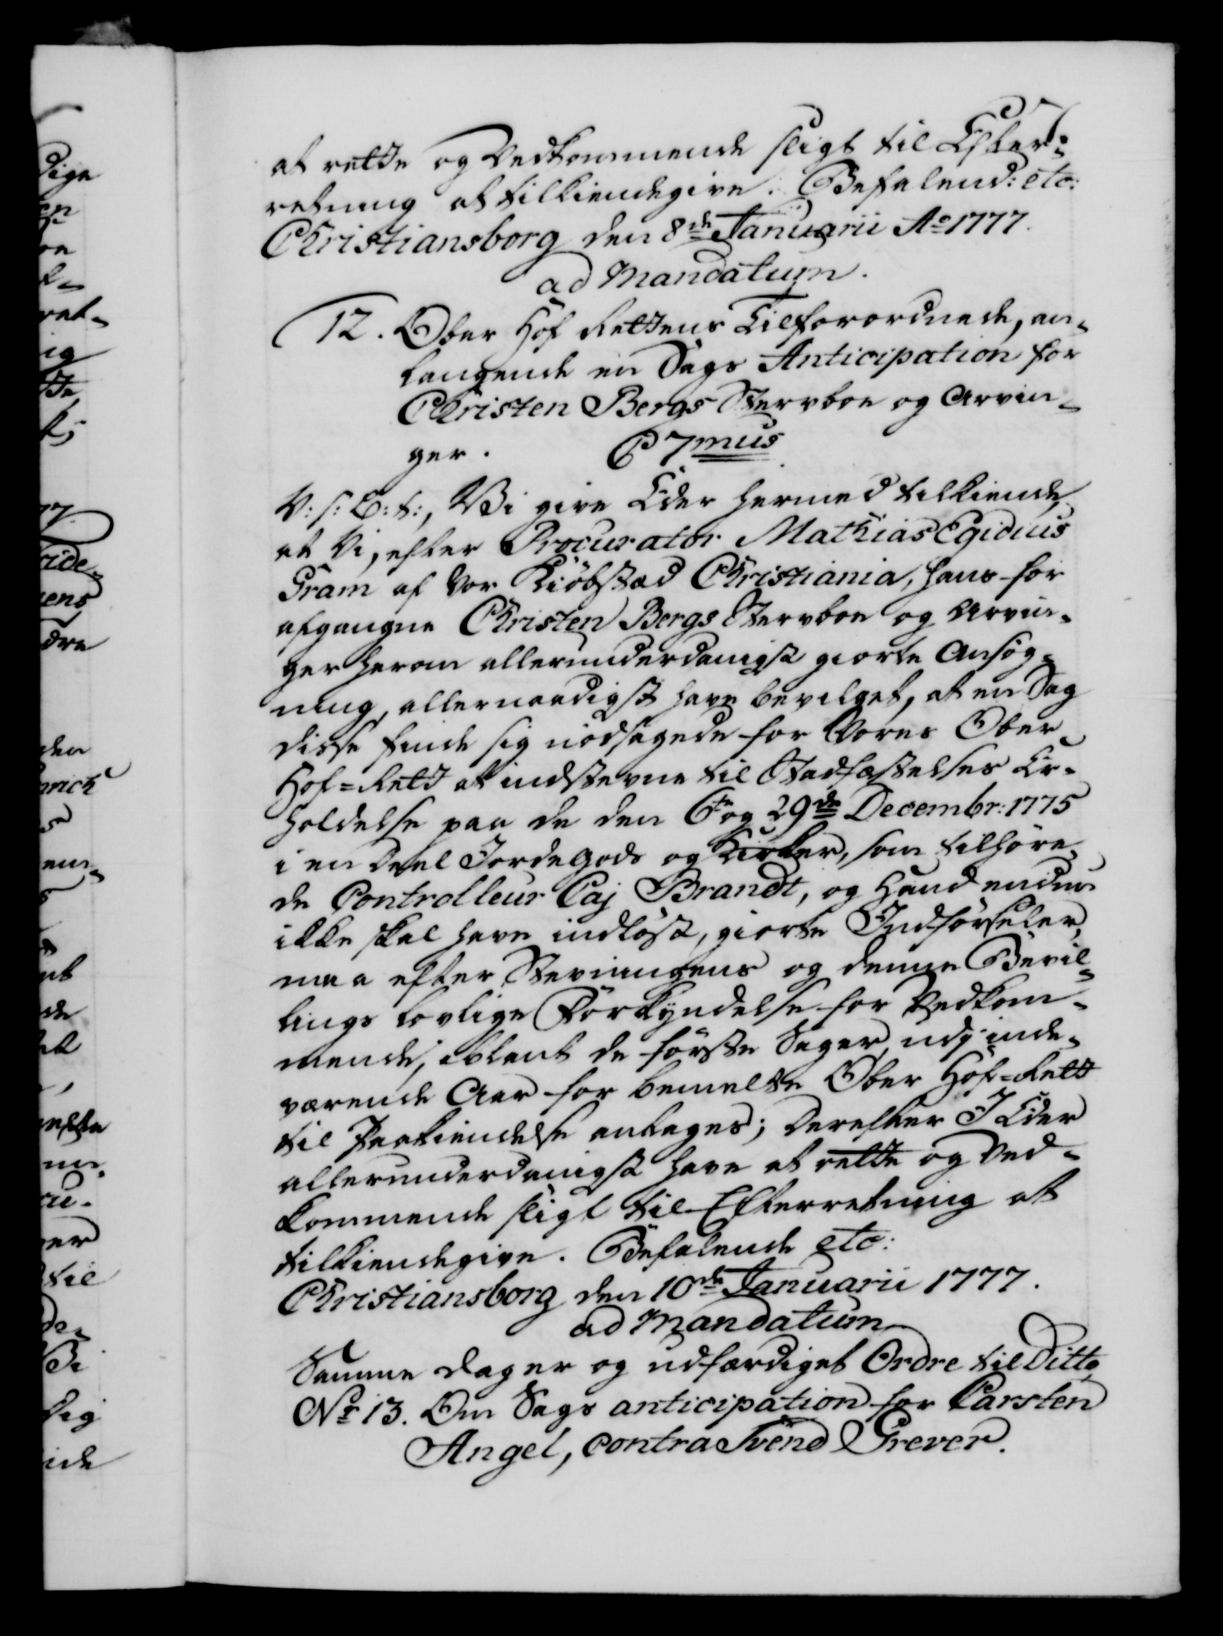 7.
at rette og Vedkommende sligt til Efter-
retning at tilkiendegive. Befalend: etc:
Christiansborg den 8de Januarii Ao 1777.
ad Mandatum.
12. Ober Hof Rettens Tilforordnede, an-
langende en Sags Anticipation for
Christen Bergs Stervboe og Arvin-
ger. C 7mus
V: s: G: t:, Vi give Eder hermed tilkiende,
at Vi, efter Procurator Mathias Egidius
Gram af Vor Kiøbstæd Christiania, hans for
afgangne Christen Bergs Stervboe og Arvin-
ger herom allerunderdanigst giorte Ansøg-
ning, allernaadigst have bevilget, at en Sag
disse finde sig nødsagede for Vores Ober-
Hof-Rett at indstevne til Stadfæstelses Er-
holdelse paa de den 6te og 29de Decembr: 1775
i en Deel Jordegods og Kirker, som tilhøre-
de Controlleur Caj Brandt, og hand endnu
ikke skal have indløst, giorte Indførseler,
maa efter Stevningens og denne Bevil-
lings lovlige Forkyndelse for Vedkom-
mende, iblant de første Sager, udj inde-
værende Aar for bemelte Ober Hof-Rett
til Paakiendelse antages; Derefter I Eder
allerunderdanigst have at rette og Ved-
kommende sligt til Efterretning at
tilkiendegive. Befalende etc:
Christiansborg den 10de Januarii 1777.
ad Mandatum
Samme Dag er og udfærdiget Ordre til Ditto
No 13. Om Sags anticipation for Carsten
Angel, contra Svend Grever.